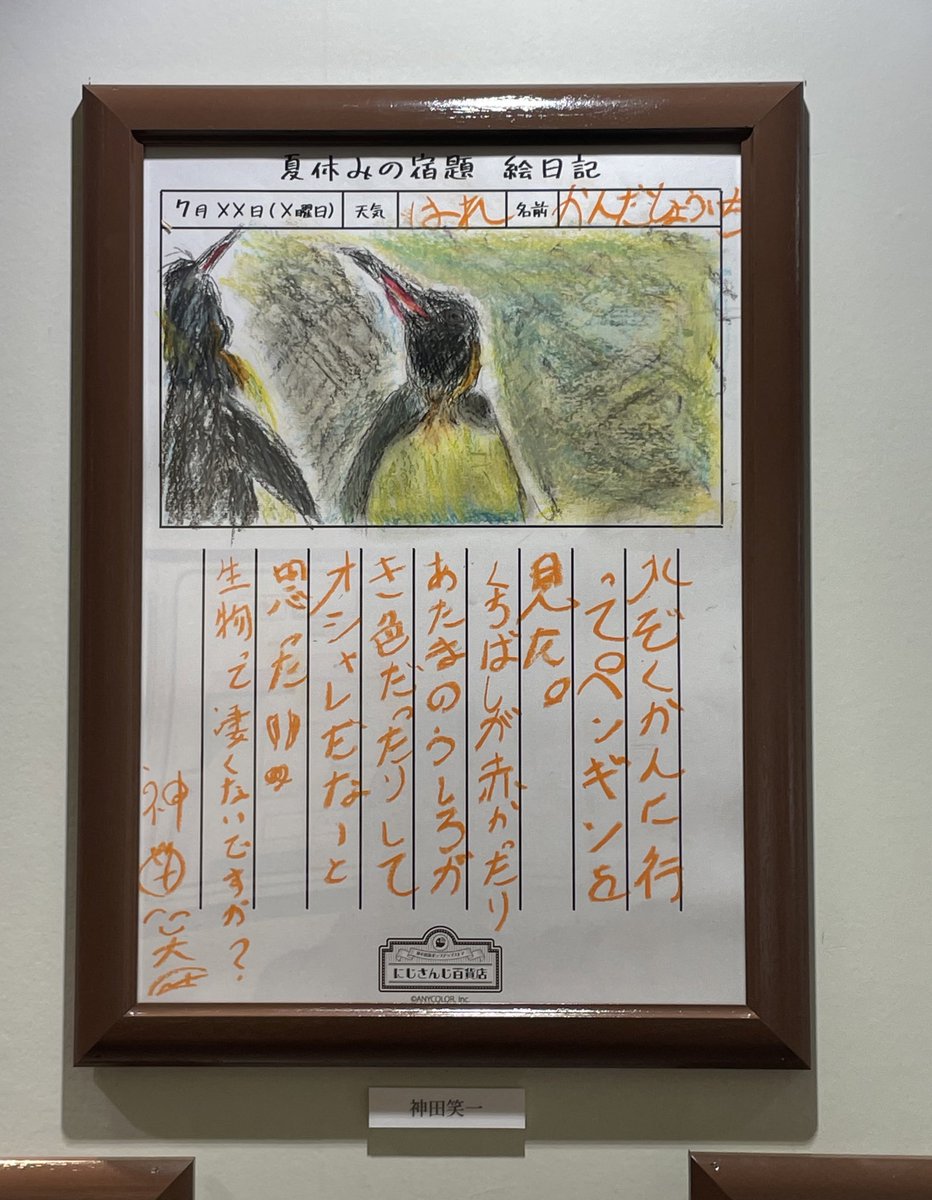 夏休みの宿題 絵日記
7月××日(×曜日) 天気 はれ 名前 かんだしょういち
水ぞくかんに行
ってペンギンを
見た。
くちばしが赤かったり
あたまのうしろが
きい色だったりして
オシャレだなーと
思った!!
生物って凄くないですか?
神田笑一
にじさんじ百貨店
©ANYCOLOR, Inc.
神田笑一